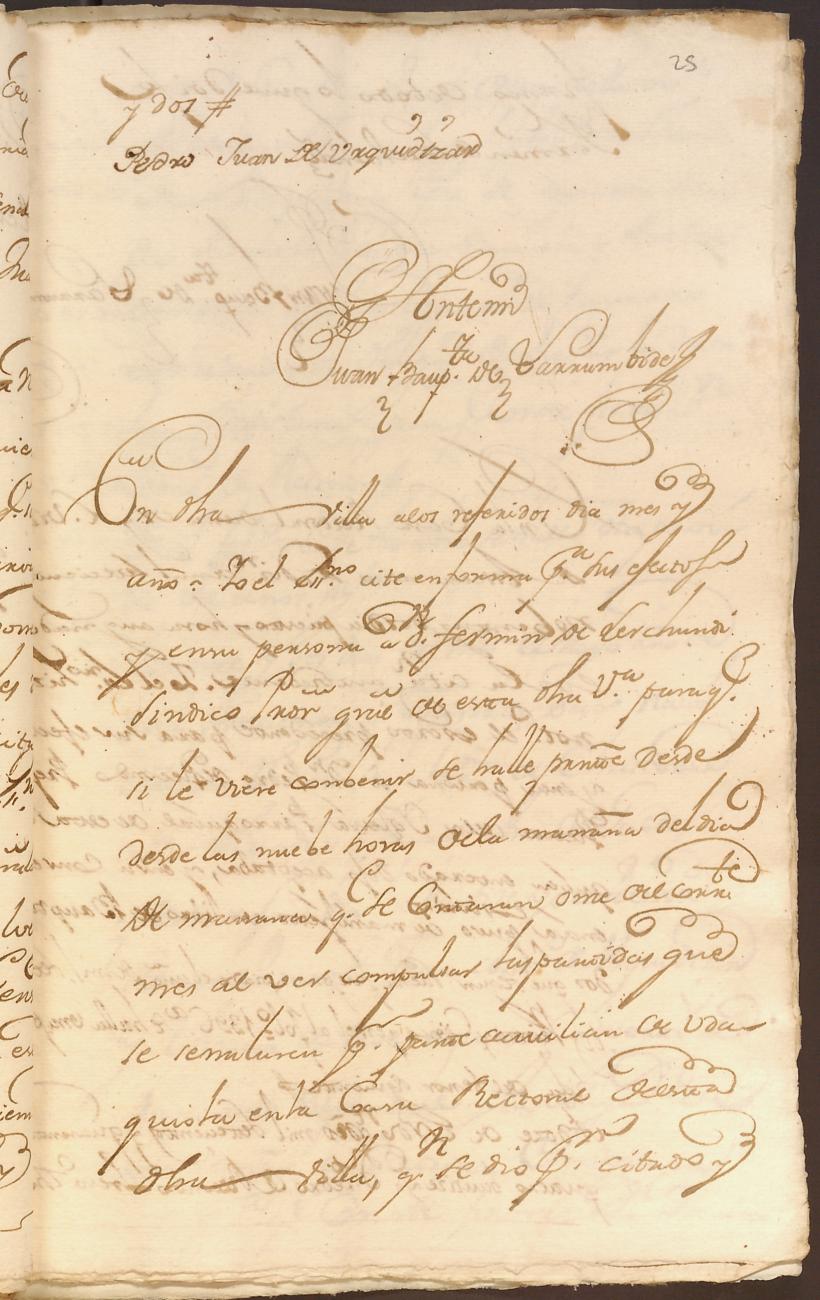 25
y dos #
Pedro Juan de Urquidizard
Antemi
Juan Baup.ta de Larrumbide
En dha Villa alos referidos dia mes y
año = Yo el Ss.no cite en forma p.a sus efectos
y en su persona a D.n fermin de Verchundi
Sindico Pror grãl de esta dha V.a para q.e
si le viere combenir se halle prnte desde
desde las nuebe horas de la mañana del dia
de manana q.e se Contaran onze del corr.te
mes al ver compulsar las partidas que
se senalaren p.r parte de
quiola en la Casa Rectoral de esta
dha Villa, q.n se dio p.r citado y